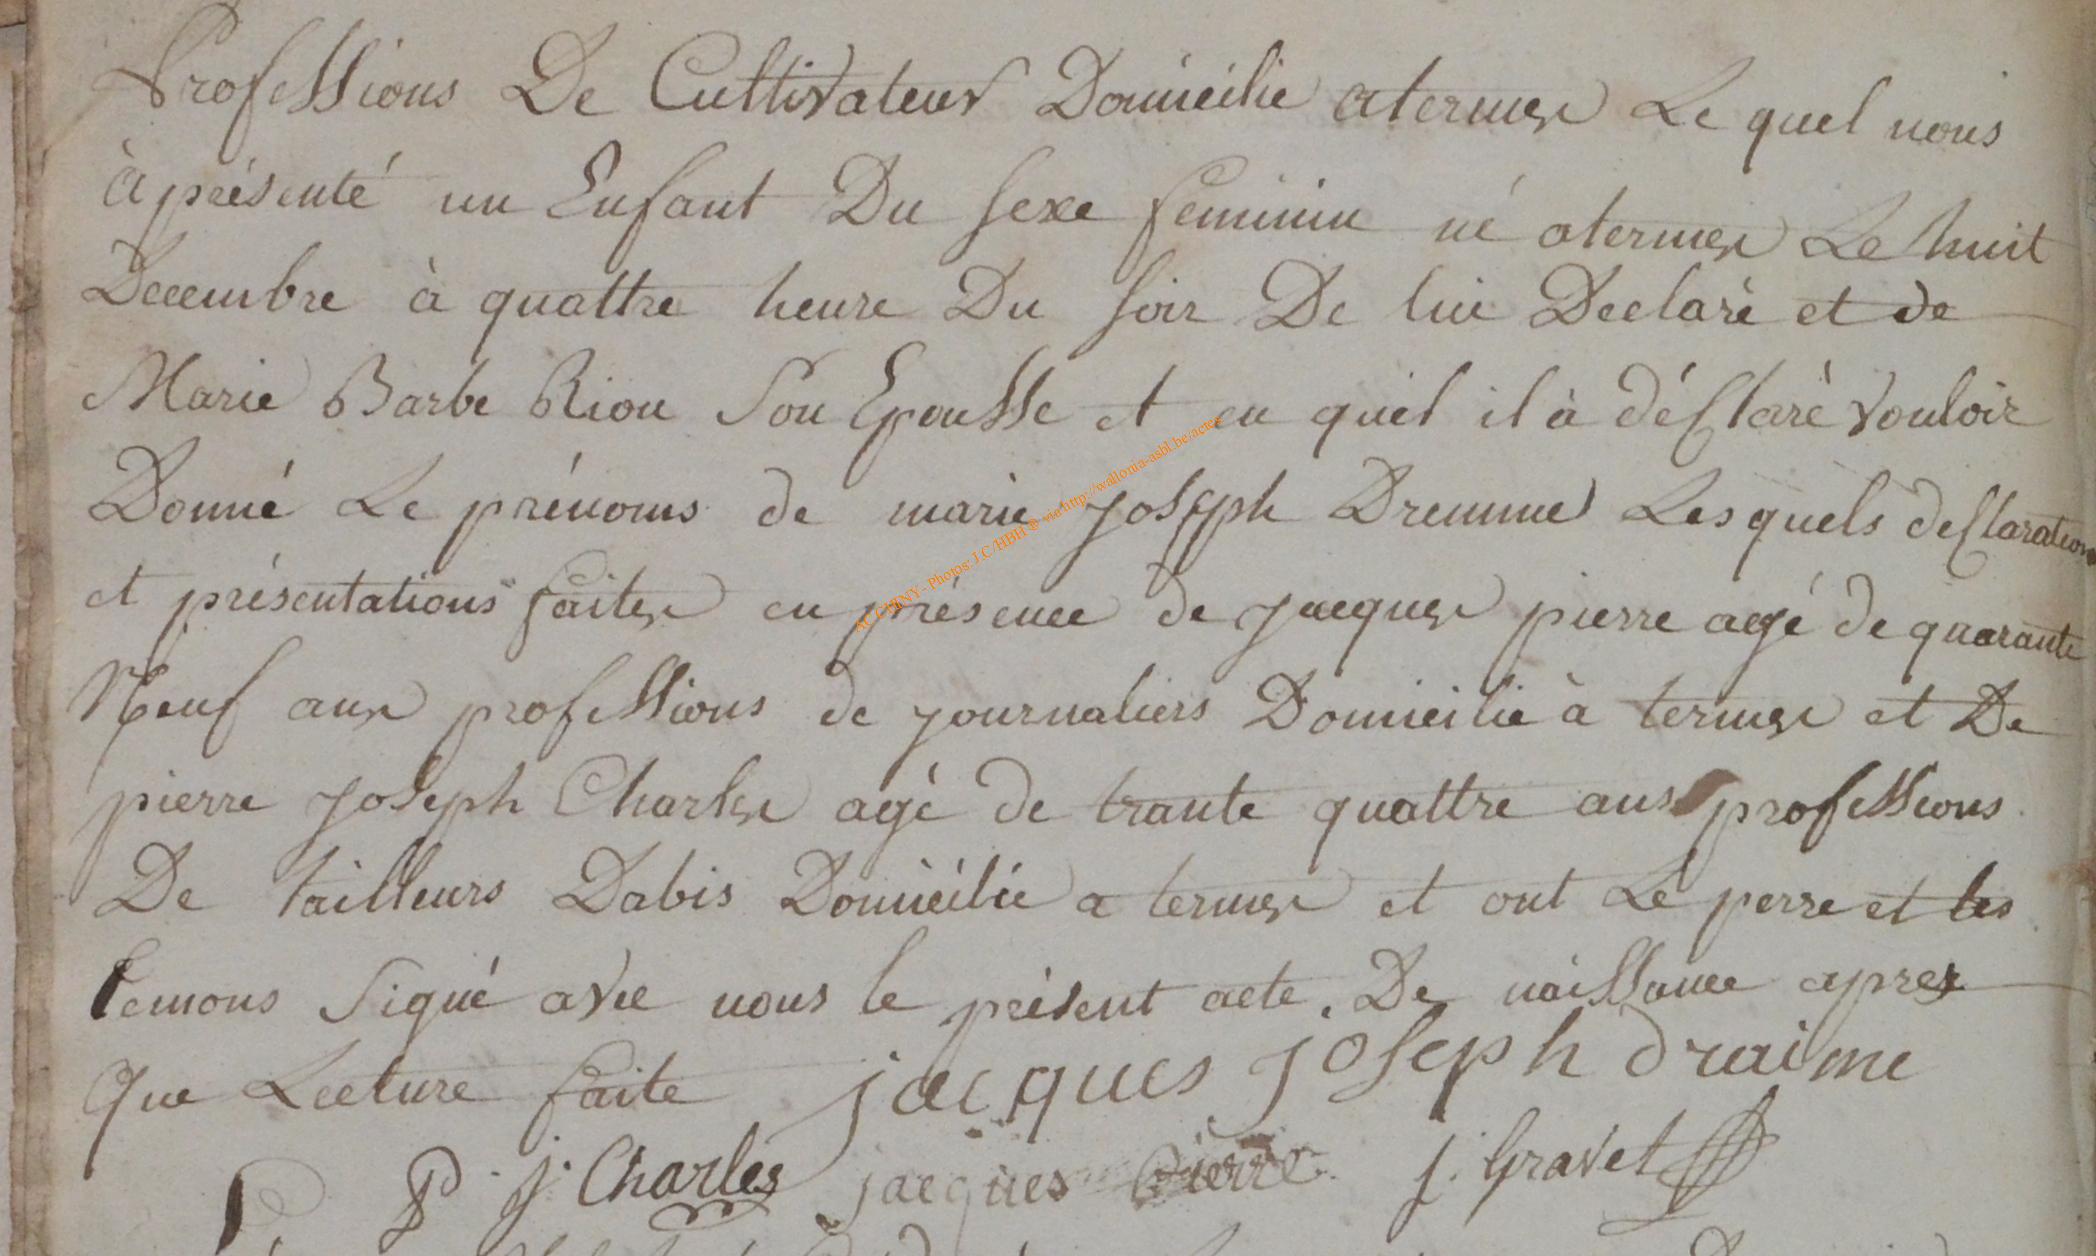 Professions De Cultivateur Domicilie a termes Le quel nous
à présenté un Enfant Du sexe feminin né a termes Le huit
Decembre à quattre heure Du soir De lui Declaré et de
Marie Barbe Riou Son Epousse et eu quel il à déclarè vouloir
Donné Le prénoms de marie Joseph Dremme Les quels declarations
et présentations faites en présence de Jacques pierre agé de quarante
Neuf ans professions de journaliers Domicilié à termes et De
pierre Joseph Charles agé de trante quattre ans professions
De tailleurs Dabis Domicilié a termes et ont Le perre et les
temons Signé avec nous le présent acte. De naissance apres
Que Lecture faite jacques joseph draime
P. j. Charles jacques Pierre J. Gravet
ACCHINY - Photos: J.C/HBH © via http://wallonia-asbl.be/actes